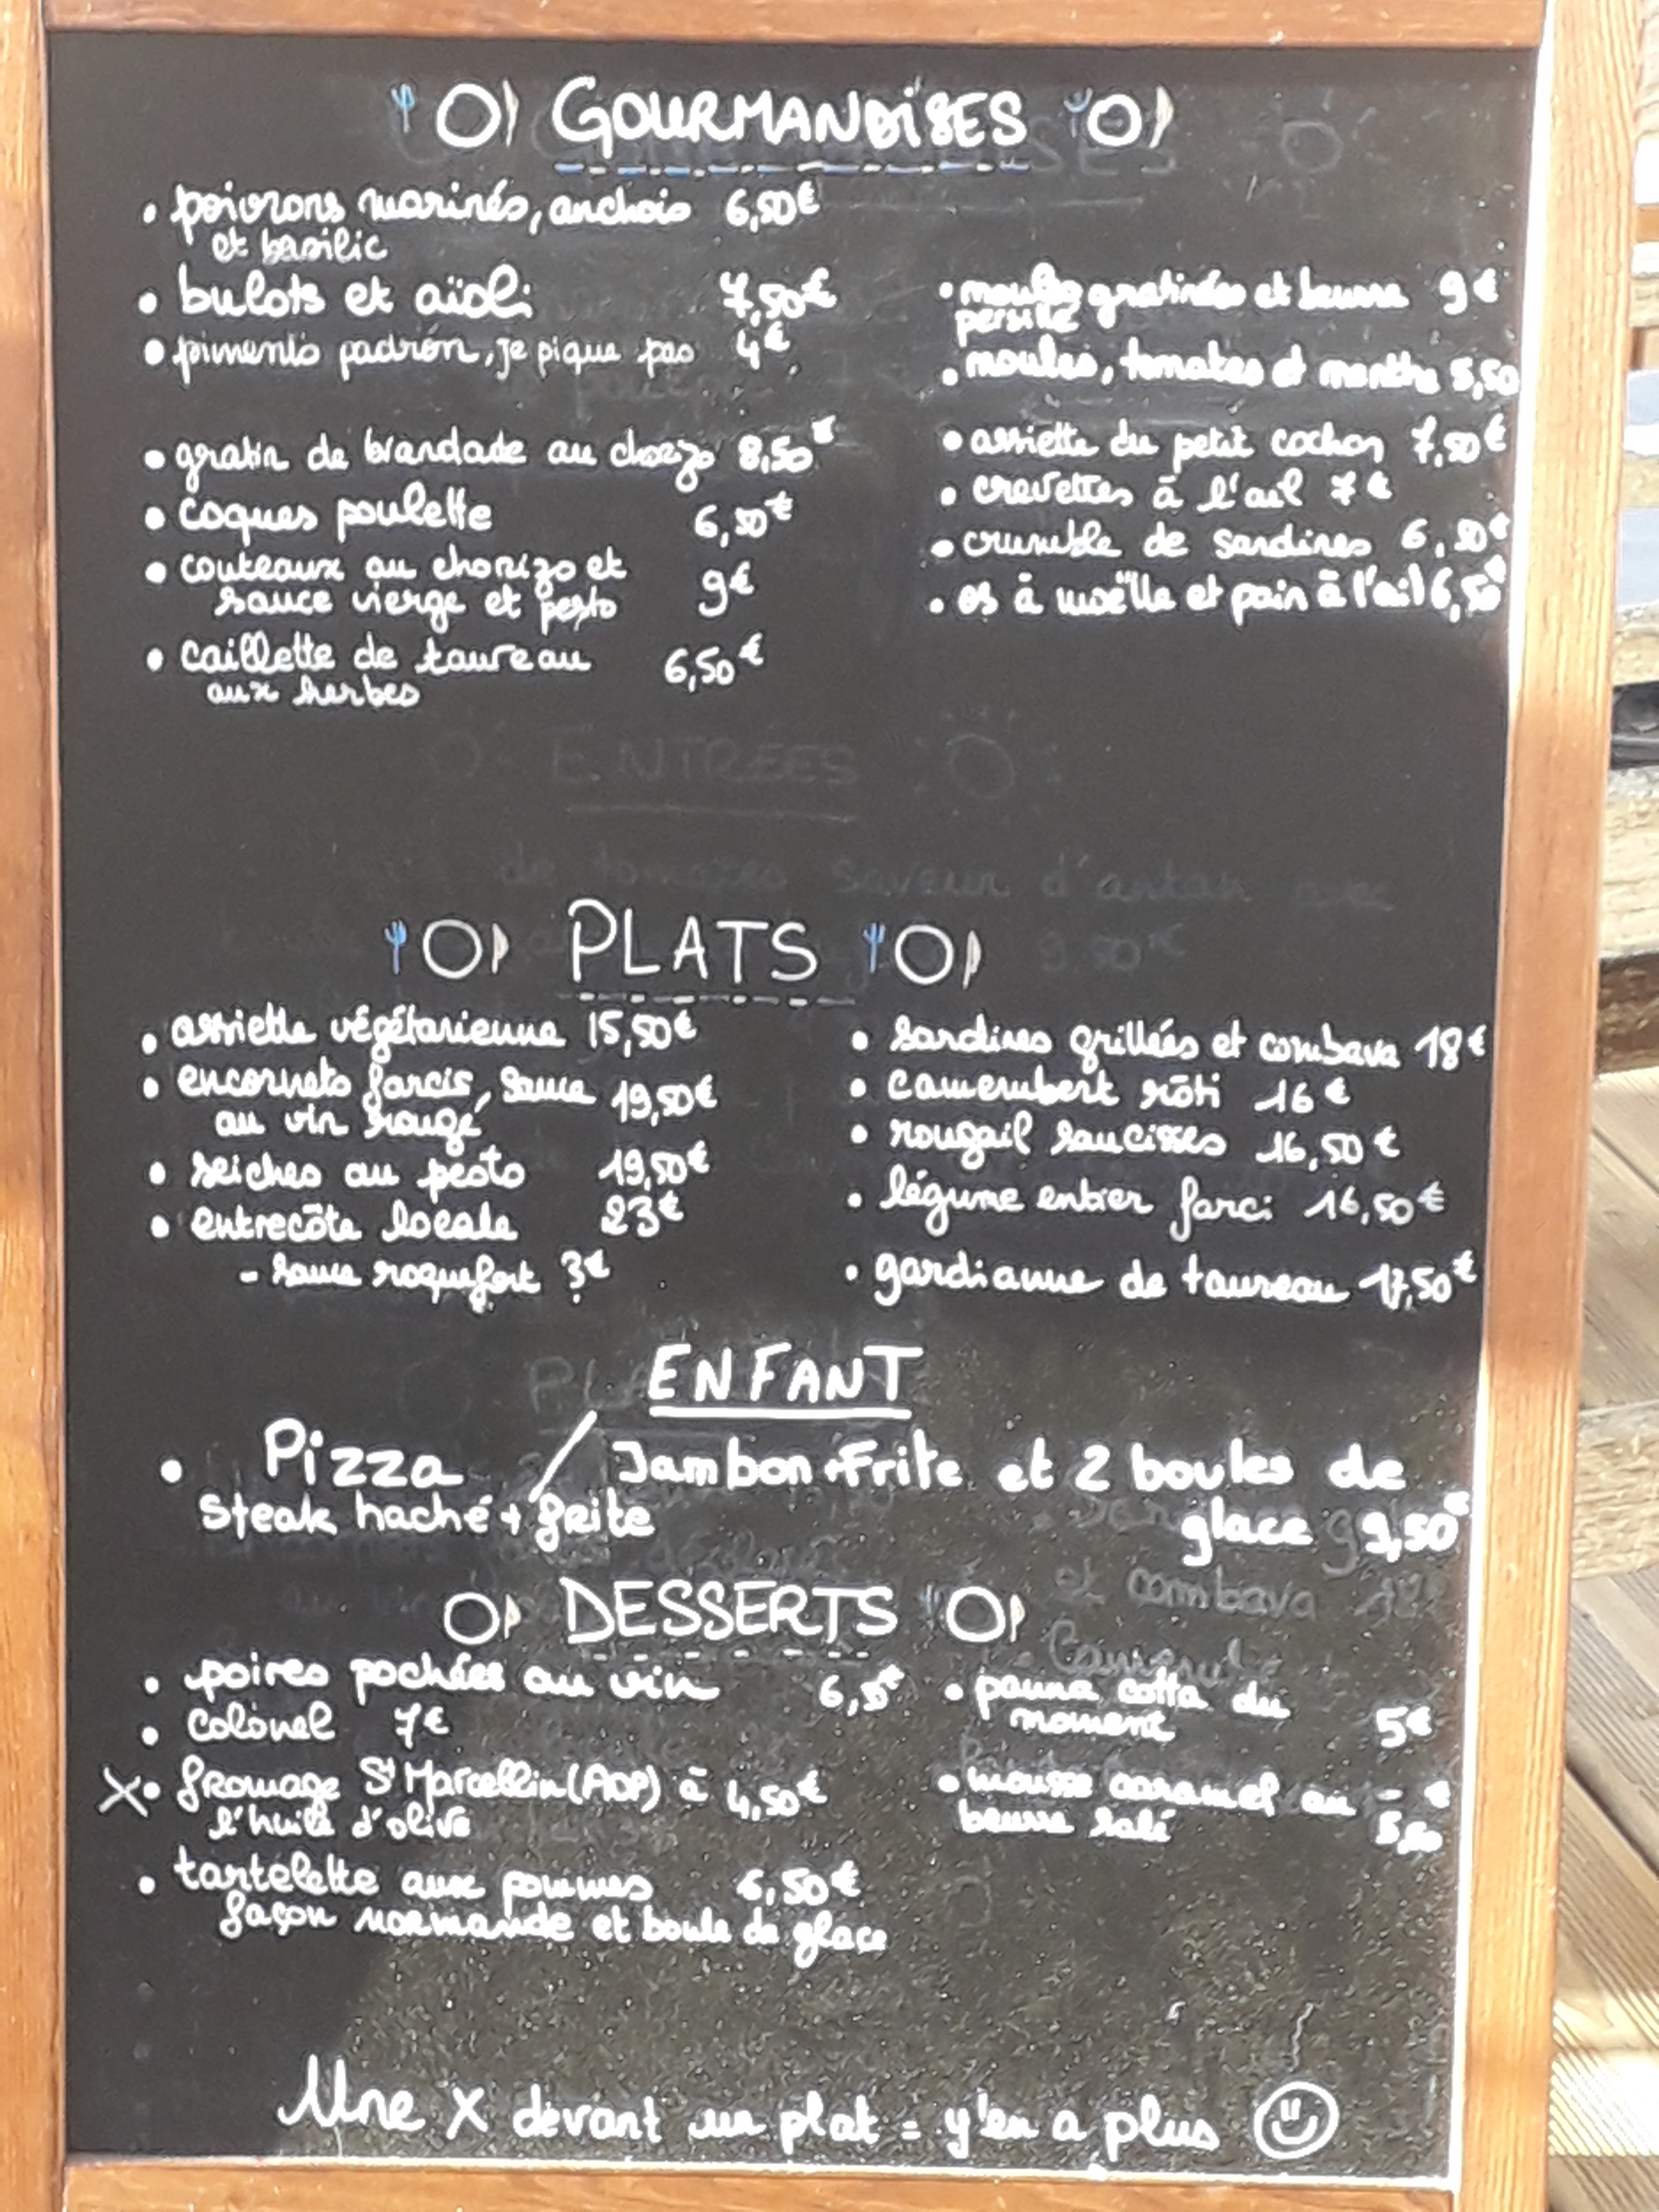 GOURMANDISES
• poivrons marinés, anchois 6,50€
et basilic
• bulots et aïoli 7,50€
• pimento padrón, je pique pas 4€
• gratin de brandade au chorizo 8,50€
• coques poulette 6,50€
• couteaux au chorizo et
sauce vierge et pesto 9€
• caillette de taureau 6,50€
aux herbes
• moules gratinées et beurre 9€
persillé
• moules, tomates et menthe 5,50
• assiette du petit cochon 7,50€
• crevettes à l'ail 7€
• crumble de sardines 6,50€
• os à moëlle et pain à l'ail 6,50€
ENTRÉES
de tomates saveur d'antan avec
9.50€
PLATS
• assiette végétarienne 15,50€
• encornets farcis, sauce 19,50€
au vin rouge
• seiches au pesto 19,50€
• entrecôte locale 23€
- sauce roquefort 3€
• sardines grillées et combava 18€
• camembert rôti 16€
• rougail saucisses 16,50€
• légume entier farci 16,50€
• gardianne de taureau 17,50€
ENFANT
• Pizza / Jambon+Frite et 2 boules de
steak haché + frite glace 9,50€
et combava 18€
DESSERTS
• poires pochées au vin 6,5€
• colonel 7€
X• fromage St Marcellin (AOP) à 4,50€
l'huile d'olive
• tartelette aux pommes 6,50€
façon normande et boule de glace
• panna cotta du
moment 5€
• mousse caramel au
beurre salé 5,50€
Une X devant un plat = y'en a plus